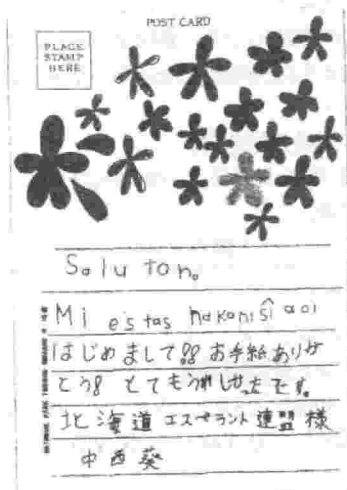 POST CARD
PLACE
STAMP
HERE
Saluton。
Mi estas nakaniŝi aoi
はじめまして!! お手紙ありが
とう! とてもうれしかったです。
北海道エスペラント連盟様
中西葵